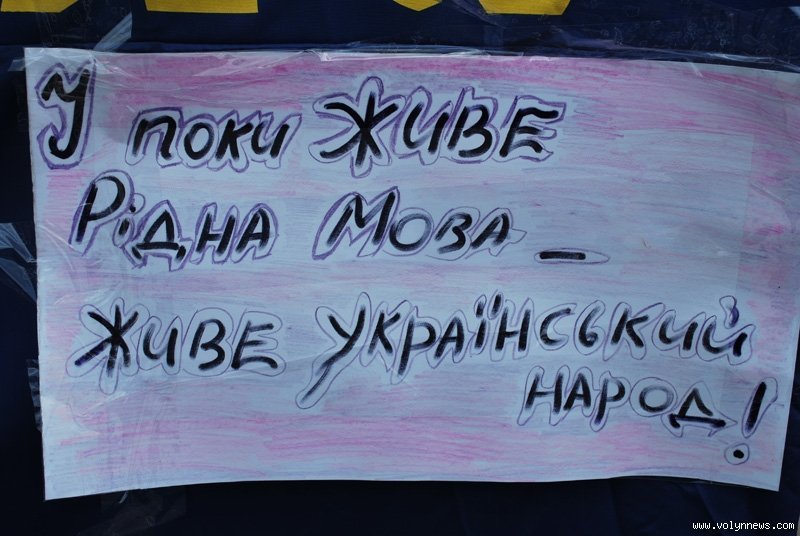 У поки ЖИВЕ
Рідна Мова –
Живе український
народ!
www.volynnews.com